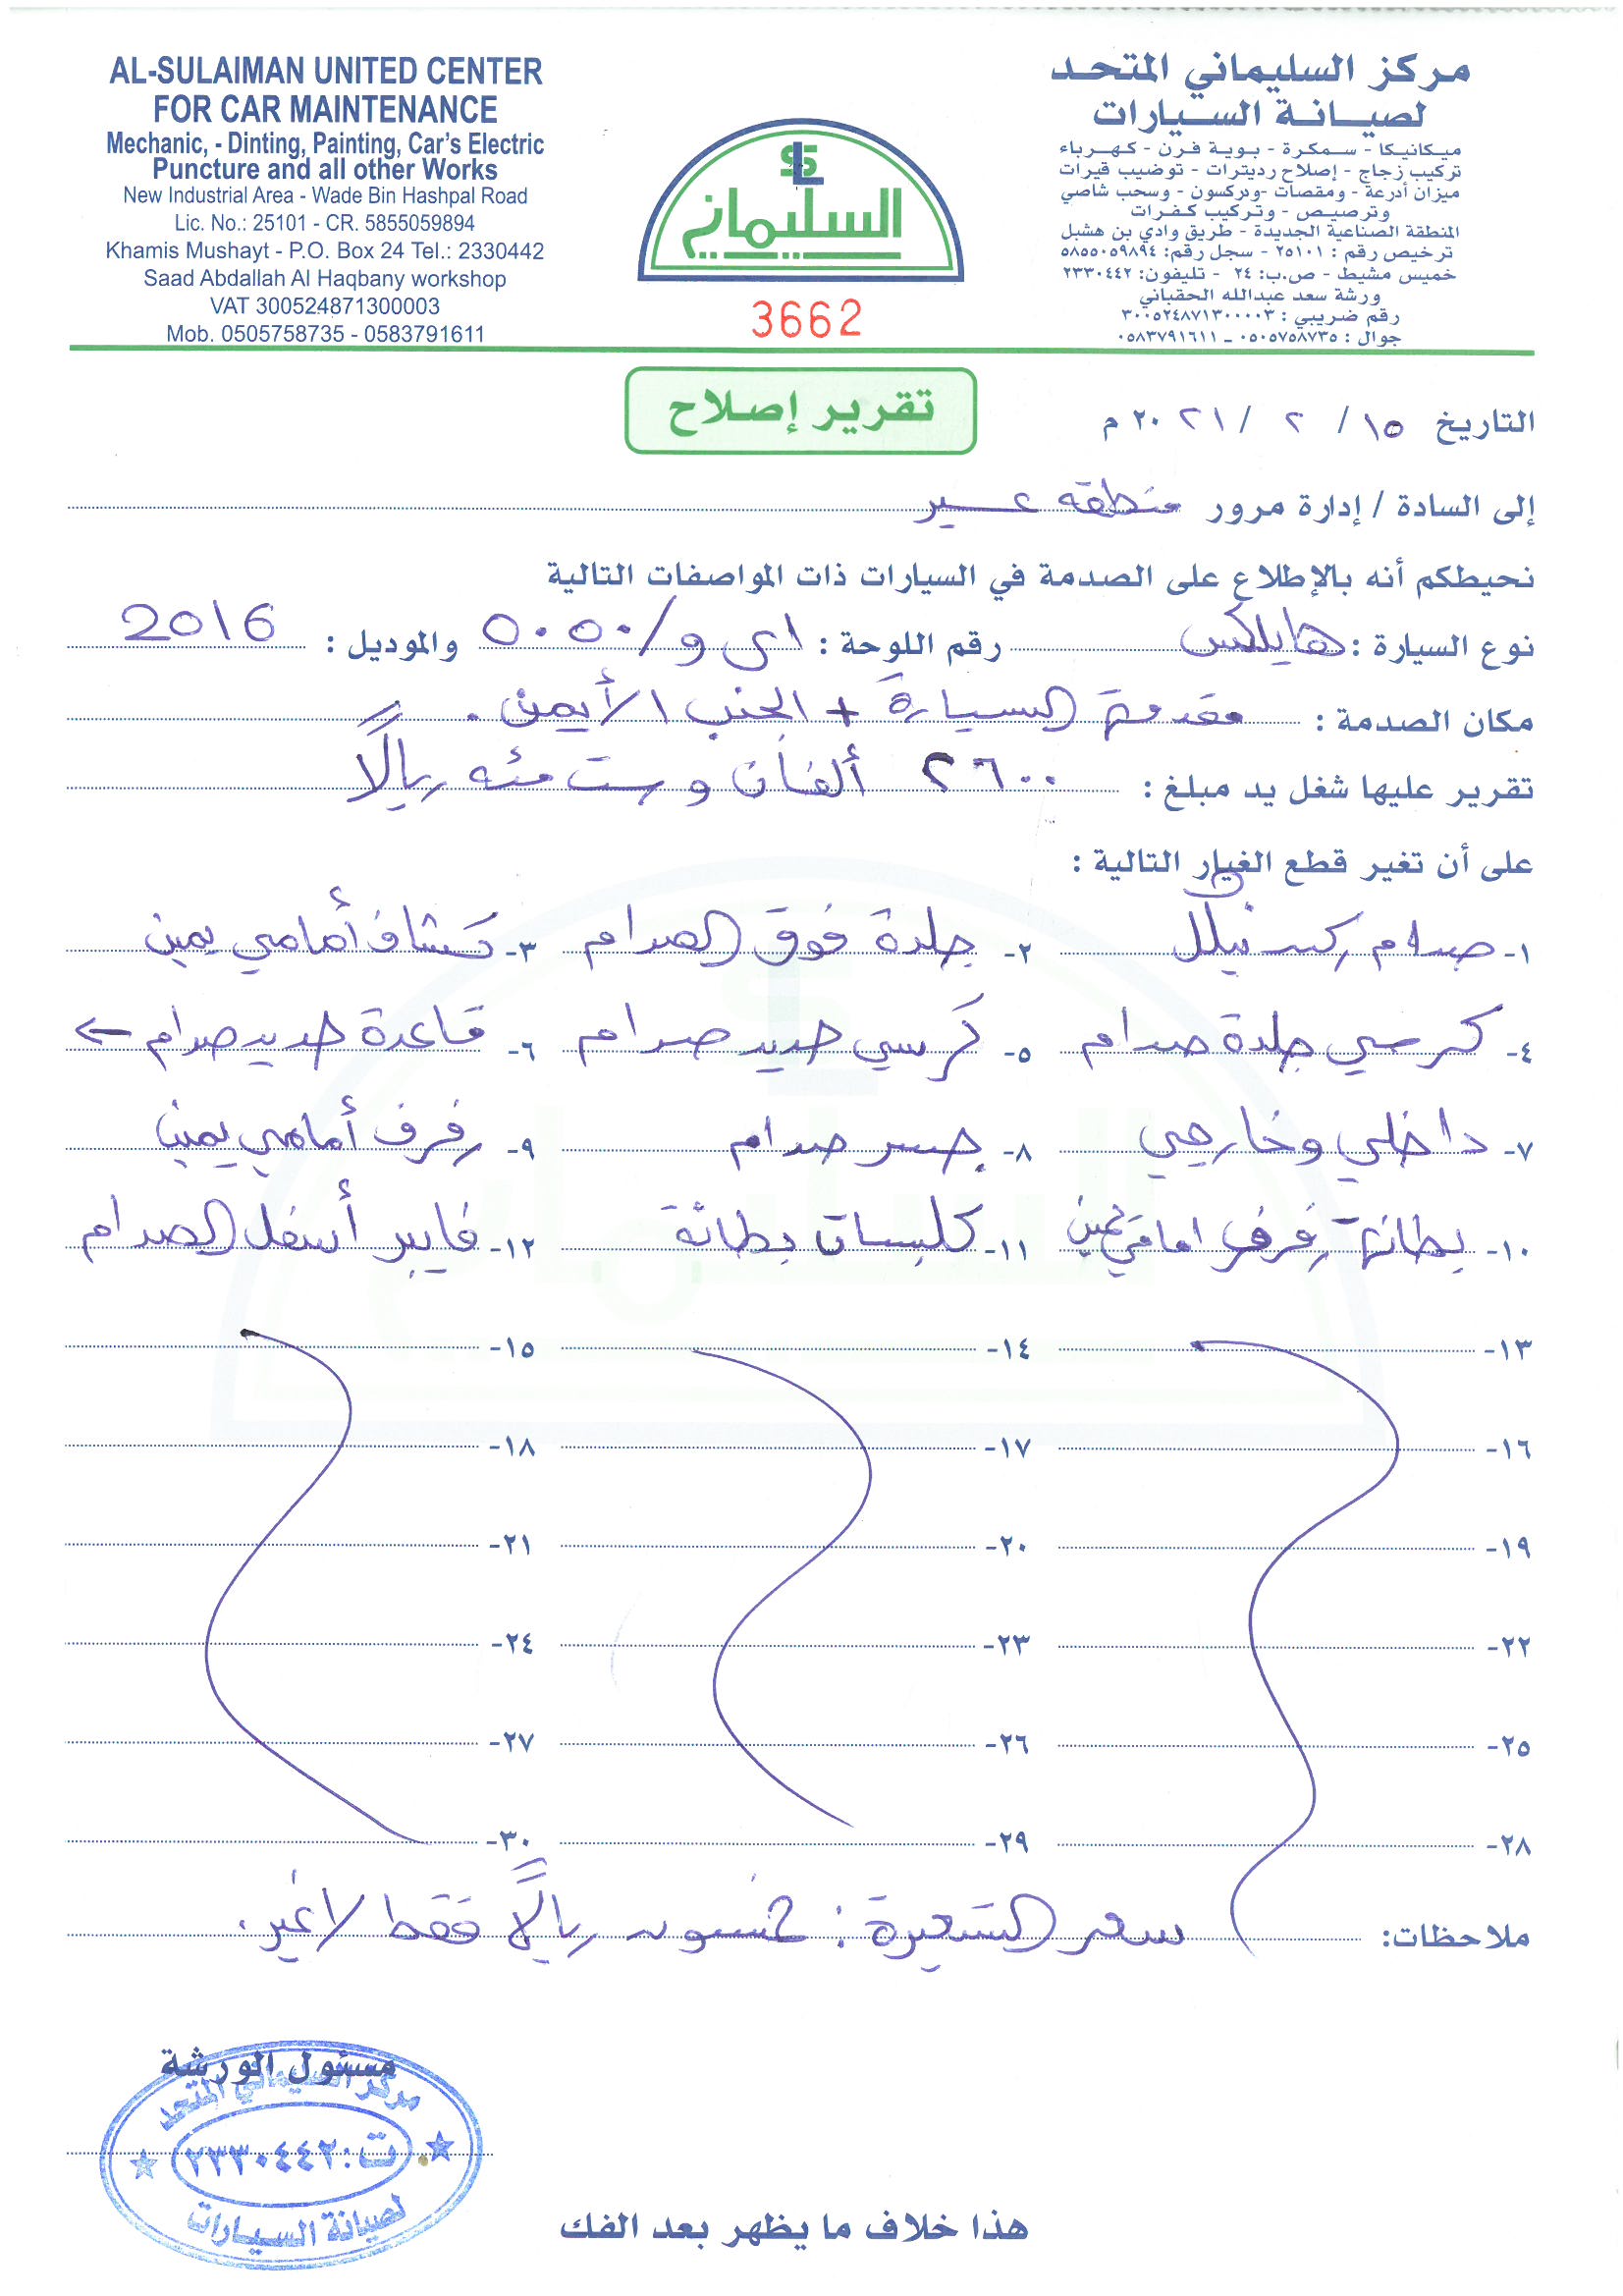 AL-SULAIMAN UNITED CENTER
FOR CAR MAINTENANCE
Mechanic, - Dinting, Painting, Car's Electric
Puncture and all other Works
New Industrial Area - Wade Bin Hashpal Road
Lic. No.: 25101 - CR. 5855059894
Khamis Mushayt - P.O. Box 24 Tel.: 2330442
Saad Abdallah Al Haqbany workshop
VAT 300524871300003
Mob. 0505758735 - 0583791611
SL
السليماني
3662
مركز السليماني المتحد
لصيانة السيارات
ميكانيكا - سمكرة - بوية فرن - كهرباء
تركيب زجاج - إصلاح رديترات - توضيب قيرات
ميزان أدرعة - ومقصات - ودركسون - وسحب شاصي
وترصيص - وتركيب كفرات
المنطقة الصناعية الجديدة - طريق وادي بن هشبل
ترخيص رقم : ٢٥١٠١ - سجل رقم: ٥٨٥٥٠٥٩٨٩٤
خميس مشيط - ص.ب: ٢٤ - تليفون: ٢٣٣٠٤٤٢
ورشة سعد عبدالله الحقباني
رقم ضريبي : ٣٠٠٥٢٤٨٧١٣٠٠٠٠٣
جوال : ٠٥٠٥٧٥٨٧٣٥ - ٠٥٨٣٧٩١٦١١
تقرير إصلاح
التاريخ ١٥ / ٢ / ٢٠٢١ م
إلى السادة / إدارة مرور منطقه عسير
نحيطكم أنه بالإطلاع على الصدمة في السيارات ذات المواصفات التالية
نوع السيارة : هايلكس رقم اللوحة : ا ى و / ٥٠٥٠ والموديل : 2016
مكان الصدمة : مقدمة السيارة + الجنب الأيمن .
تقرير عليها شغل يد مبلغ : ٢٦٠٠ ألفان و ست مئه ريالاً
على أن تغير قطع الغيار التالية :
١- صدام ٢- جلدة فوق الصدام ٣- كشاف أمامي يمين
٤- كرسي جلدة صدام ٥- كرسي حديد صدام ٦- قاعدة حديد صدام ←
٧- داخلي وخارجي ٨- جسر صدام ٩- رفرف أمامي يمين
١٠- بطانة رفرف امامي يمين ١١- كلبسات بطانة ١٢- فايبر أسفل الصدام
١٣- ١٤- ١٥-
١٦- ١٧- ١٨-
١٩- ٢٠- ٢١-
٢٢- ٢٣- ٢٤-
٢٥- ٢٦- ٢٧-
٢٨- ٢٩- ٣٠-
ملاحظات: سعر التسعيرة : خمسون ريالاً فقط لاغير .
مسئول الورشة
مركز السليماني المتحد
ت: ٢٣٣٠٤٤٢
لصيانة السيارات
هذا خلاف ما يظهر بعد الفك